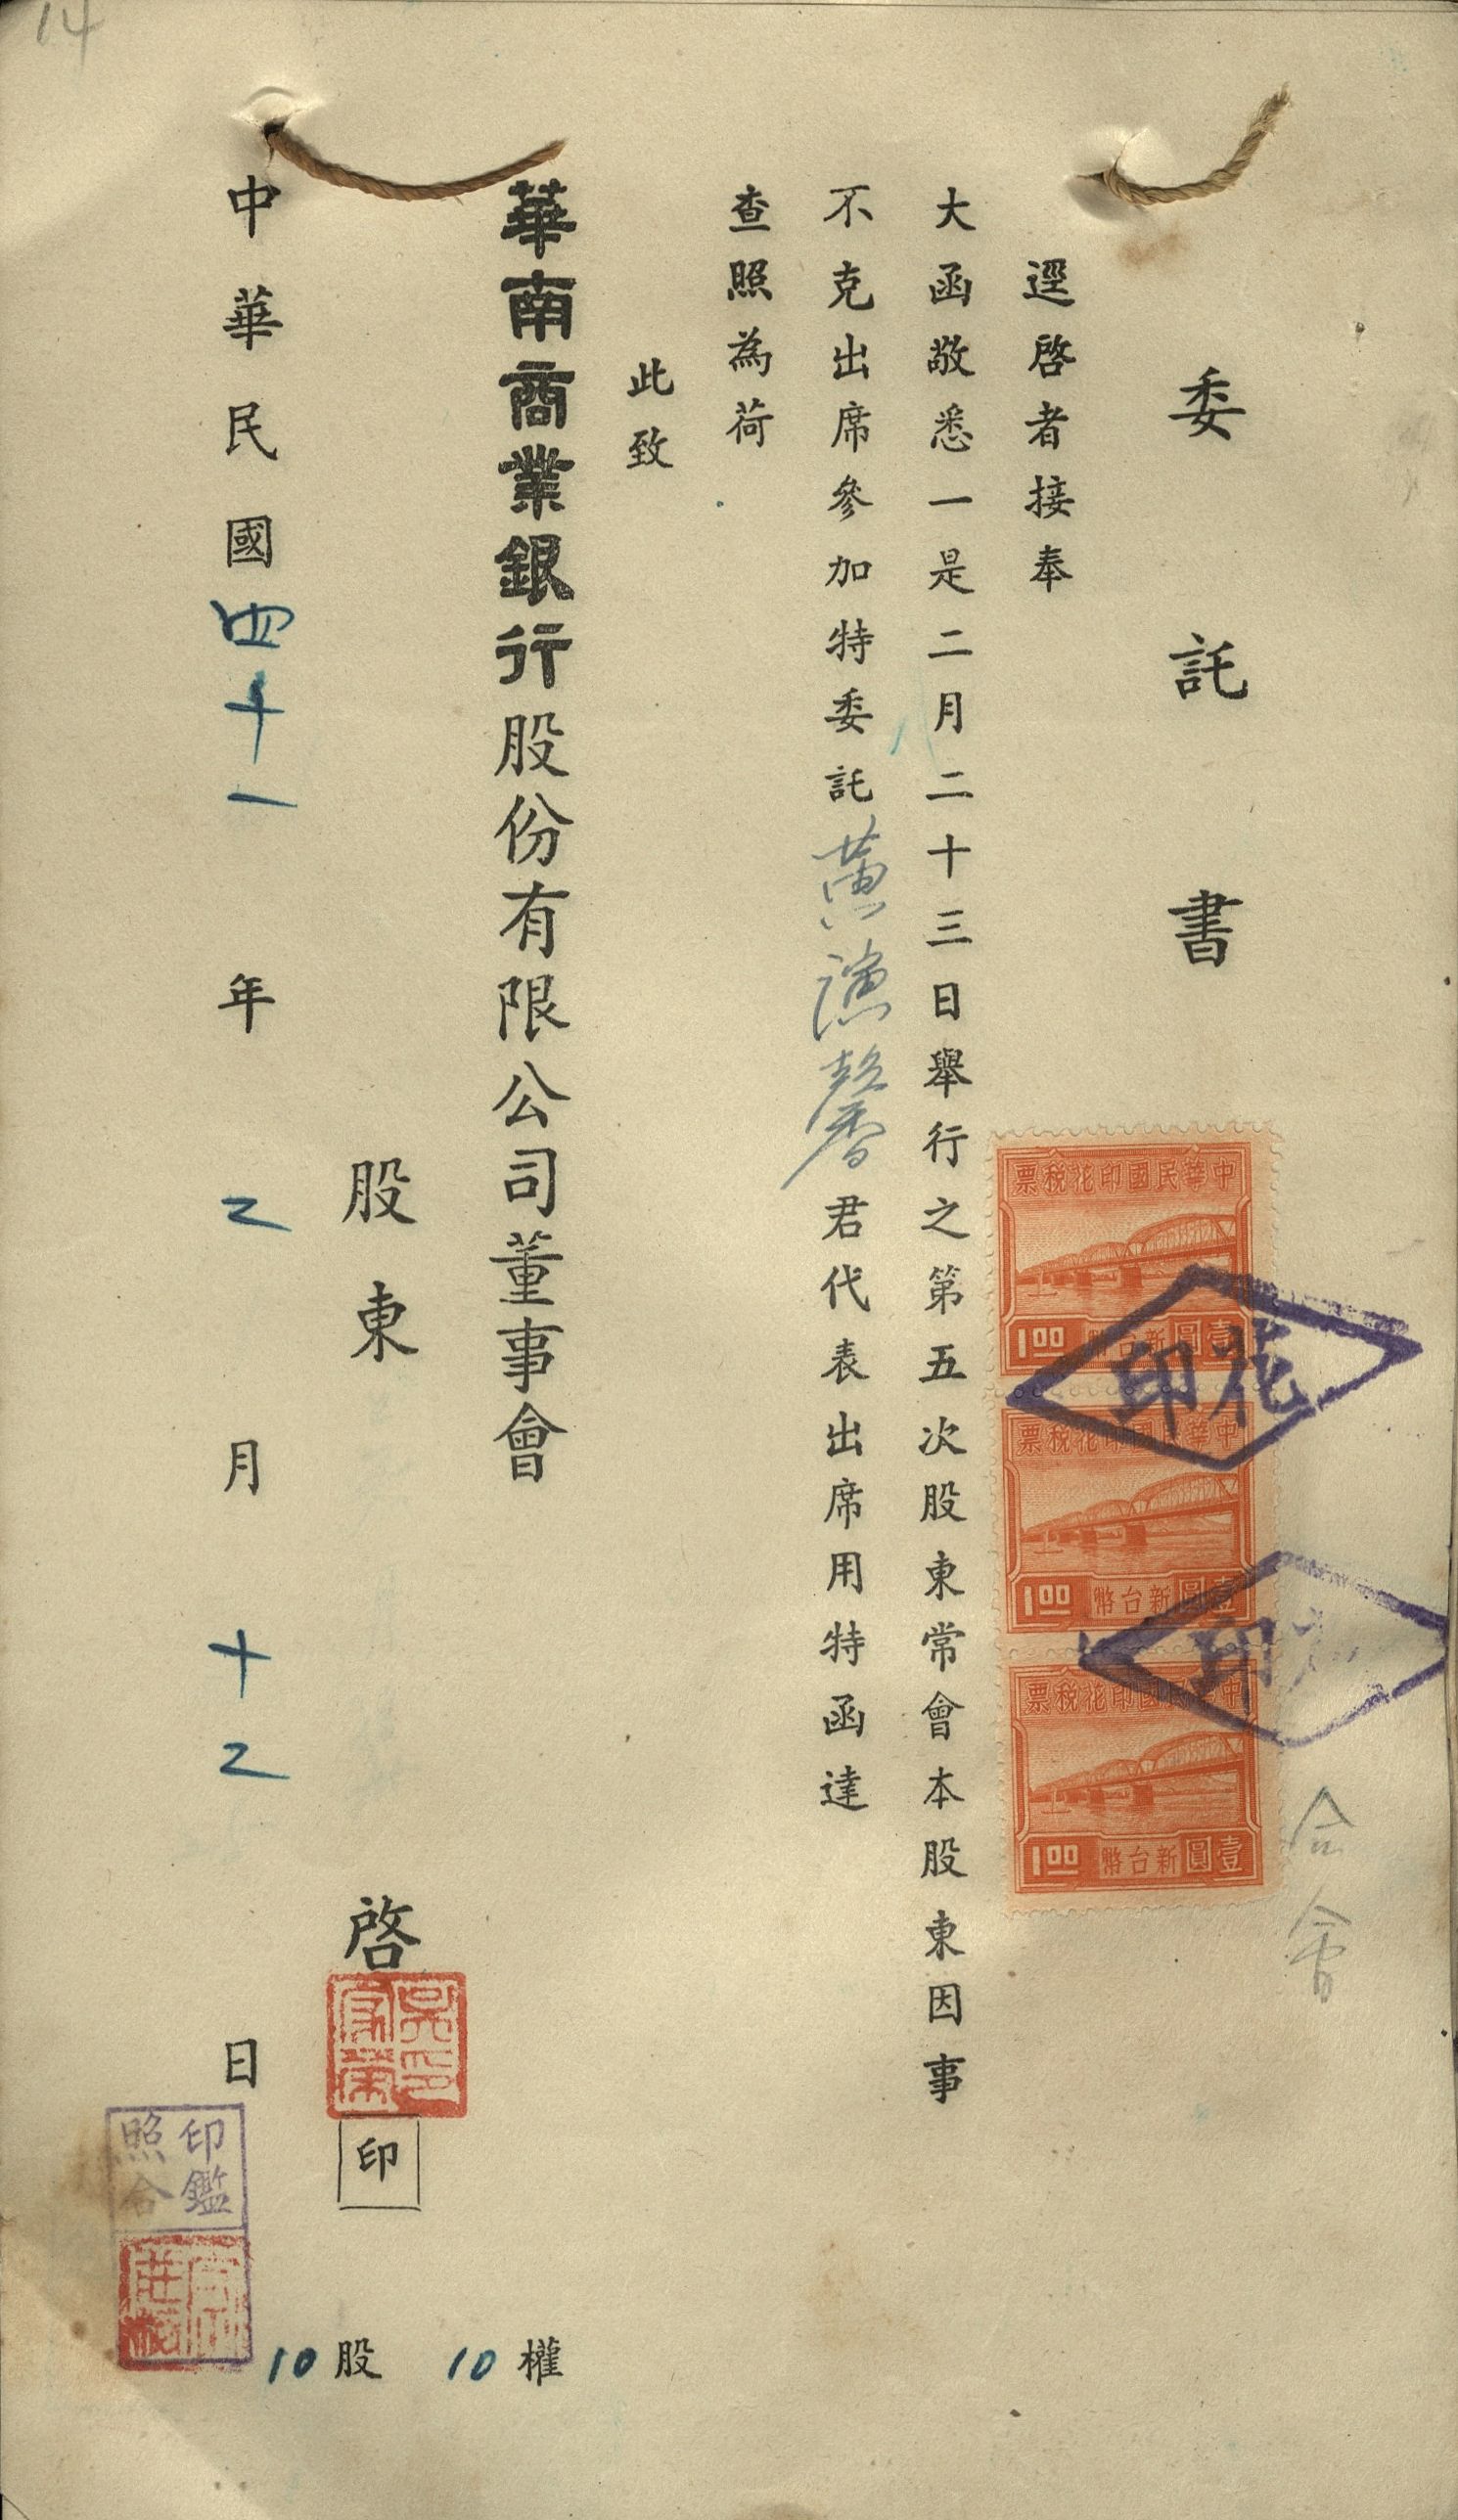 14
委託書
逕啓者接奉
大函敬悉一是二月二十三日舉行之第五次股東常會本股東因事
不克出席參加特委託黃濂馨君代表出席用特函達
查照為荷
此致
華南商業銀行股份有限公司董事會
股東 啓
印
中華民國四十一年二月十二日
10股 10權
中華民國印花稅票
1.00 新台幣壹圓
中華民國印花稅票
1.00 新台幣壹圓
中華民國印花稅票
1.00 新台幣壹圓
花印
印
印鑑照合